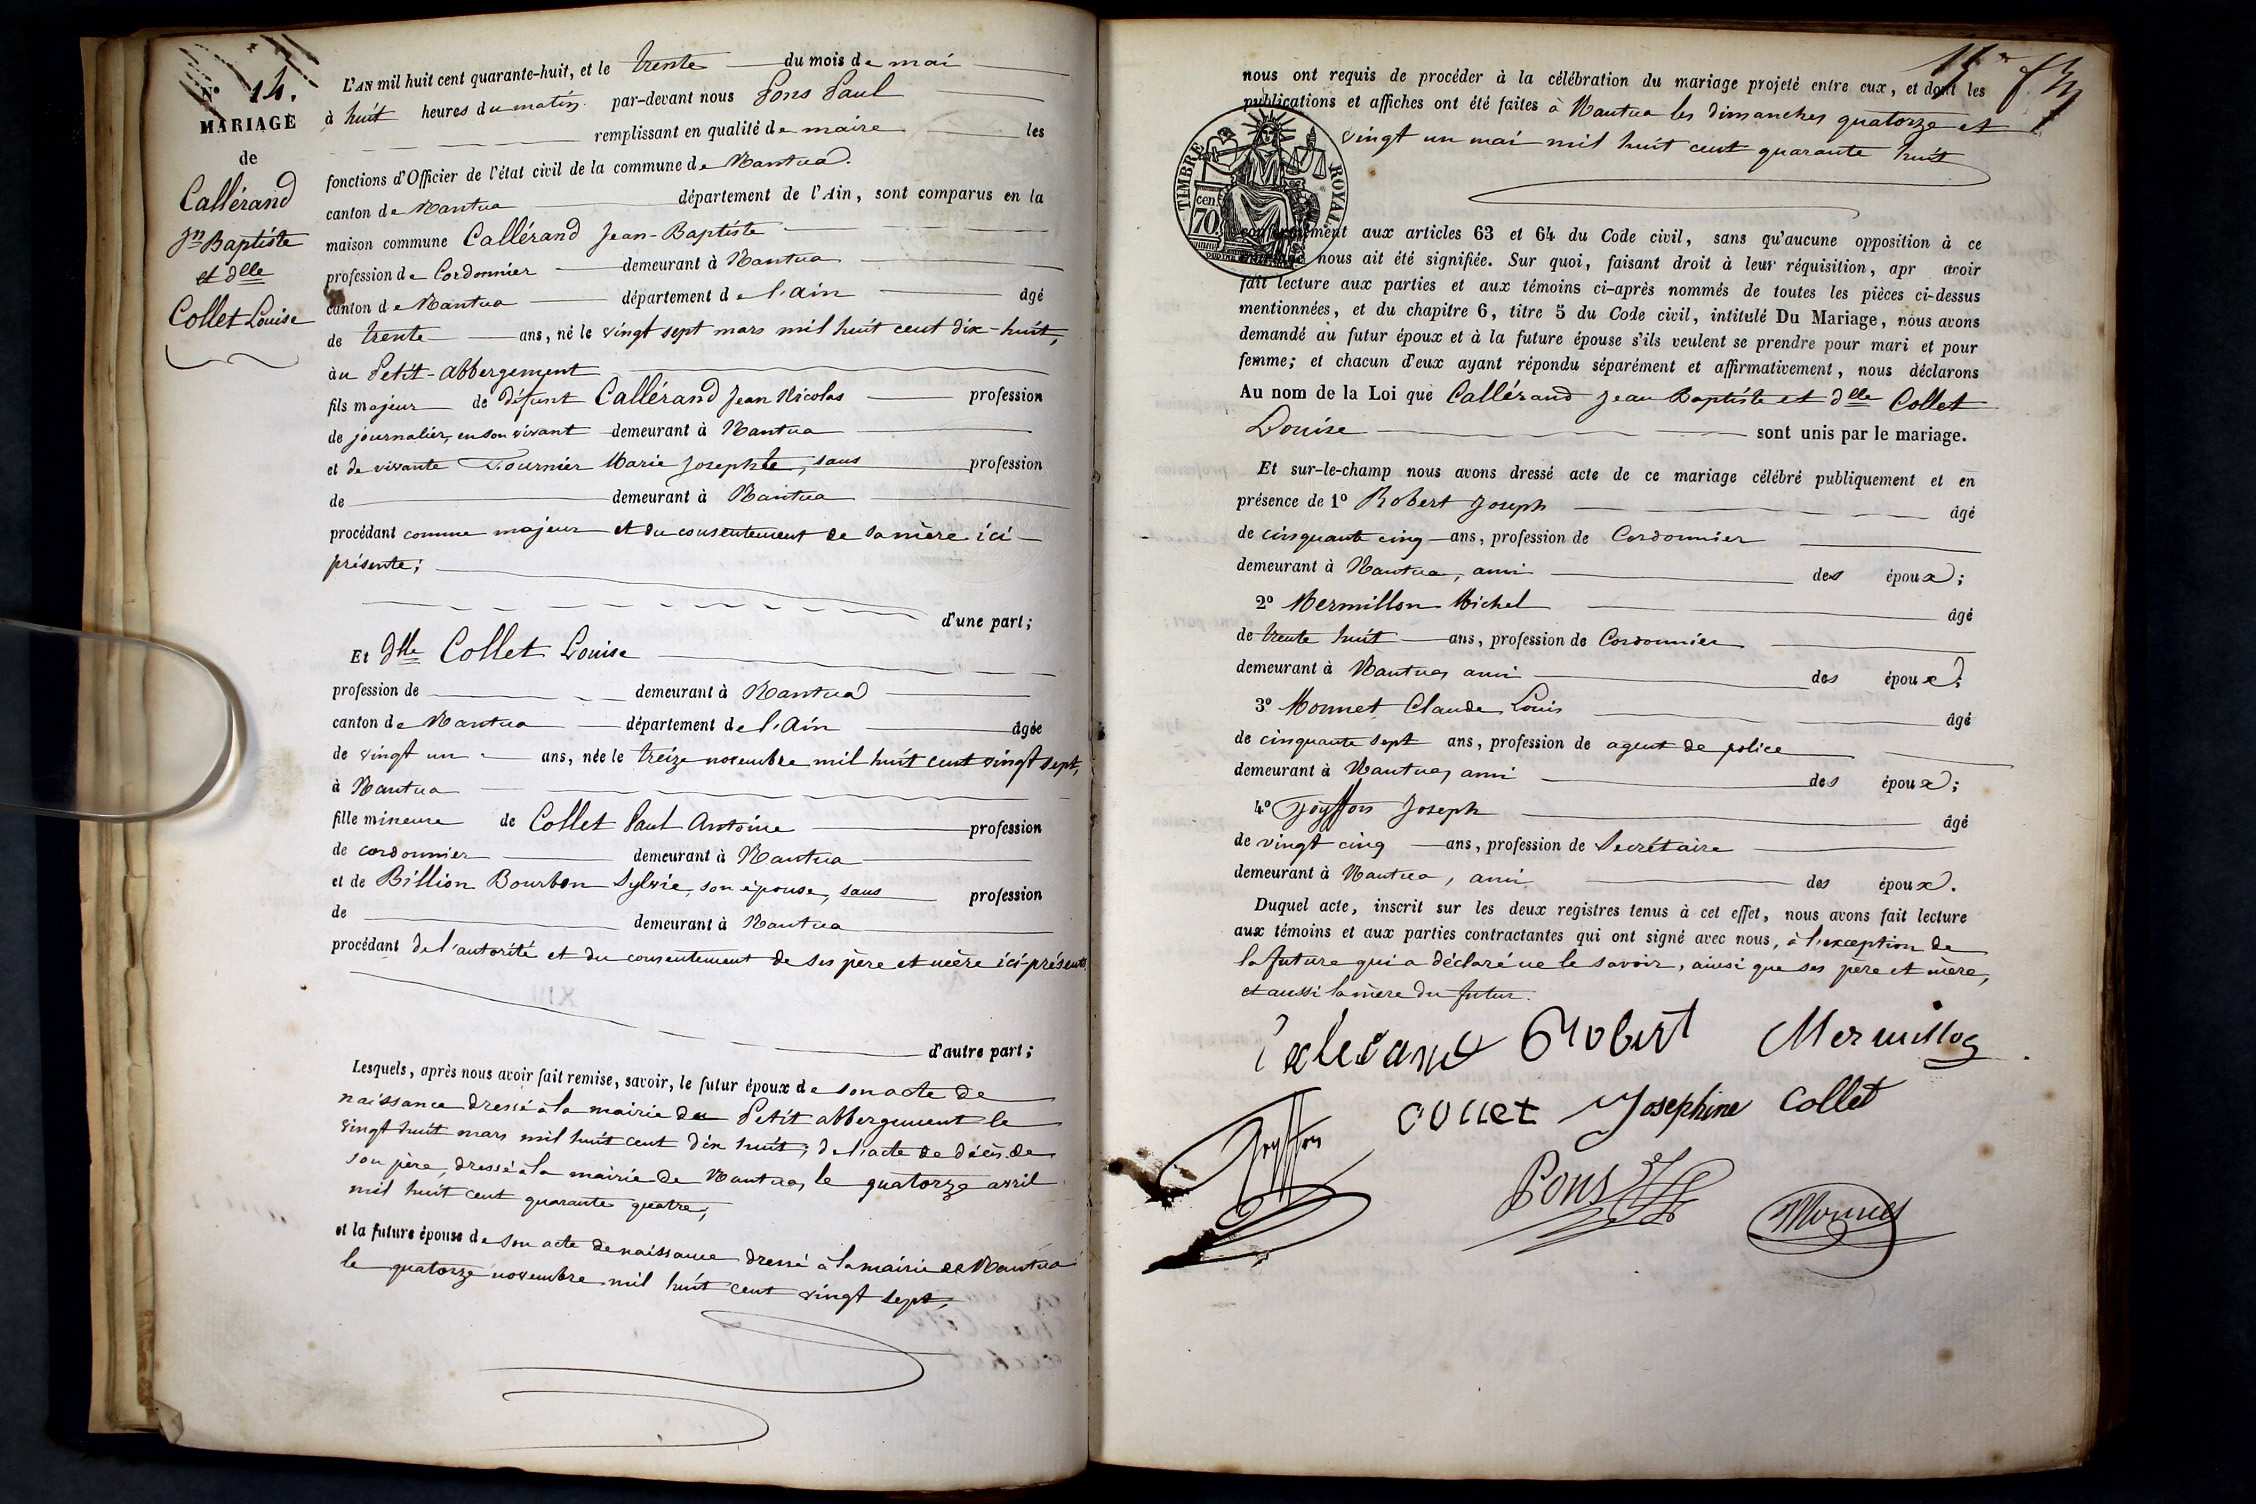 N° 14.
MARIAGE
de
Callérand
Jn Baptiste
et dlle
Collet Louise
L'AN mil huit cent quarante-huit, et le trente du mois de mai
à huit heures du matin par-devant nous Pons Paul
remplissant en qualité de maire les
fonctions d'Officier de l'état civil de la commune de Nantua.
canton de Nantua département de l'Ain, sont comparus en la
maison commune Callérand Jean-Baptiste
profession de Cordonnier demeurant à Nantua
canton de Nantua département de l'Ain âgé
de trente ans, né le vingt sept mars mil huit cent dix-huit,
au Petit-Abbergement
fils majeur de défunt Callérand Jean Nicolas profession
de journalier, en son vivant demeurant à Nantua
et de vivante Fournier Marie Josephte, sans profession
de demeurant à Nantua
procédant comme majeur et du consentement de sa mère ici
présente;
d'une part;
Et dlle Collet Louise
profession de demeurant à Nantua
canton de Nantua département de l'Ain âgée
de vingt un ans, née le treize novembre mil huit cent vingt sept,
à Nantua
fille mineure de Collet Paul Antoine profession
de cordonnier demeurant à Nantua
et de Billion Bourbon Sylvie, son épouse, sans profession
de demeurant à Nantua
procédant de l'autorité et du consentement de ses père et mère ici présents
d'autre part;
Lesquels, après nous avoir fait remise, savoir, le futur époux de son acte de
naissance dressé à la mairie du Petit abbergement le
vingt huit mars mil huit cent dix huit; de l'acte de décès de
son père, dressé à la mairie de Nantua, le quatorze avril
mil huit cent quarante quatre,
et la future épouse de son acte de naissance dressé à la mairie de Nantua
le quatorze novembre mil huit cent vingt sept,
nous ont requis de procéder à la célébration du mariage projeté entre eux, et dont les
publications et affiches ont été faites à Nantua les dimanches quatorze et
vingt un mai mil huit cent quarante huit
TIMBRE ROYAL
70 cen
aux articles 63 et 64 du Code civil, sans qu'aucune opposition à ce
nous ait été signifiée. Sur quoi, faisant droit à leur réquisition, apr avoir
fait lecture aux parties et aux témoins ci-après nommés de toutes les pièces ci-dessus
mentionnées, et du chapitre 6, titre 5 du Code civil, intitulé Du Mariage, nous avons
demandé au futur époux et à la future épouse s'ils veulent se prendre pour mari et pour
femme; et chacun d'eux ayant répondu séparément et affirmativement, nous déclarons
Au nom de la Loi que Callérand Jean Baptiste et dlle Collet
Louise sont unis par le mariage.
Et sur-le-champ nous avons dressé acte de ce mariage célébré publiquement et en
présence de 1° Robert Joseph âgé
de cinquante cinq ans, profession de Cordonnier
demeurant à Nantua, ami des époux;
2° Mermillon Michel âgé
de trente huit ans, profession de Cordonnier
demeurant à Nantua, ami des époux;
3° Monnet Claude Louis âgé
de cinquante sept ans, profession de agent de police
demeurant à Nantua, ami des époux;
4° Joyffon Joseph âgé
de vingt cinq ans, profession de Secrétaire
demeurant à Nantua, ami des époux.
Duquel acte, inscrit sur les deux registres tenus à cet effet, nous avons fait lecture
aux témoins et aux parties contractantes qui ont signé avec nous, à l'exception de
la future qui a déclaré ne le savoir, ainsi que ses père et mère,
et aussi la mère du futur.
Calerand Robert Mermillon
Collet Josephine Collet
Joyffon
Pons
Monnet